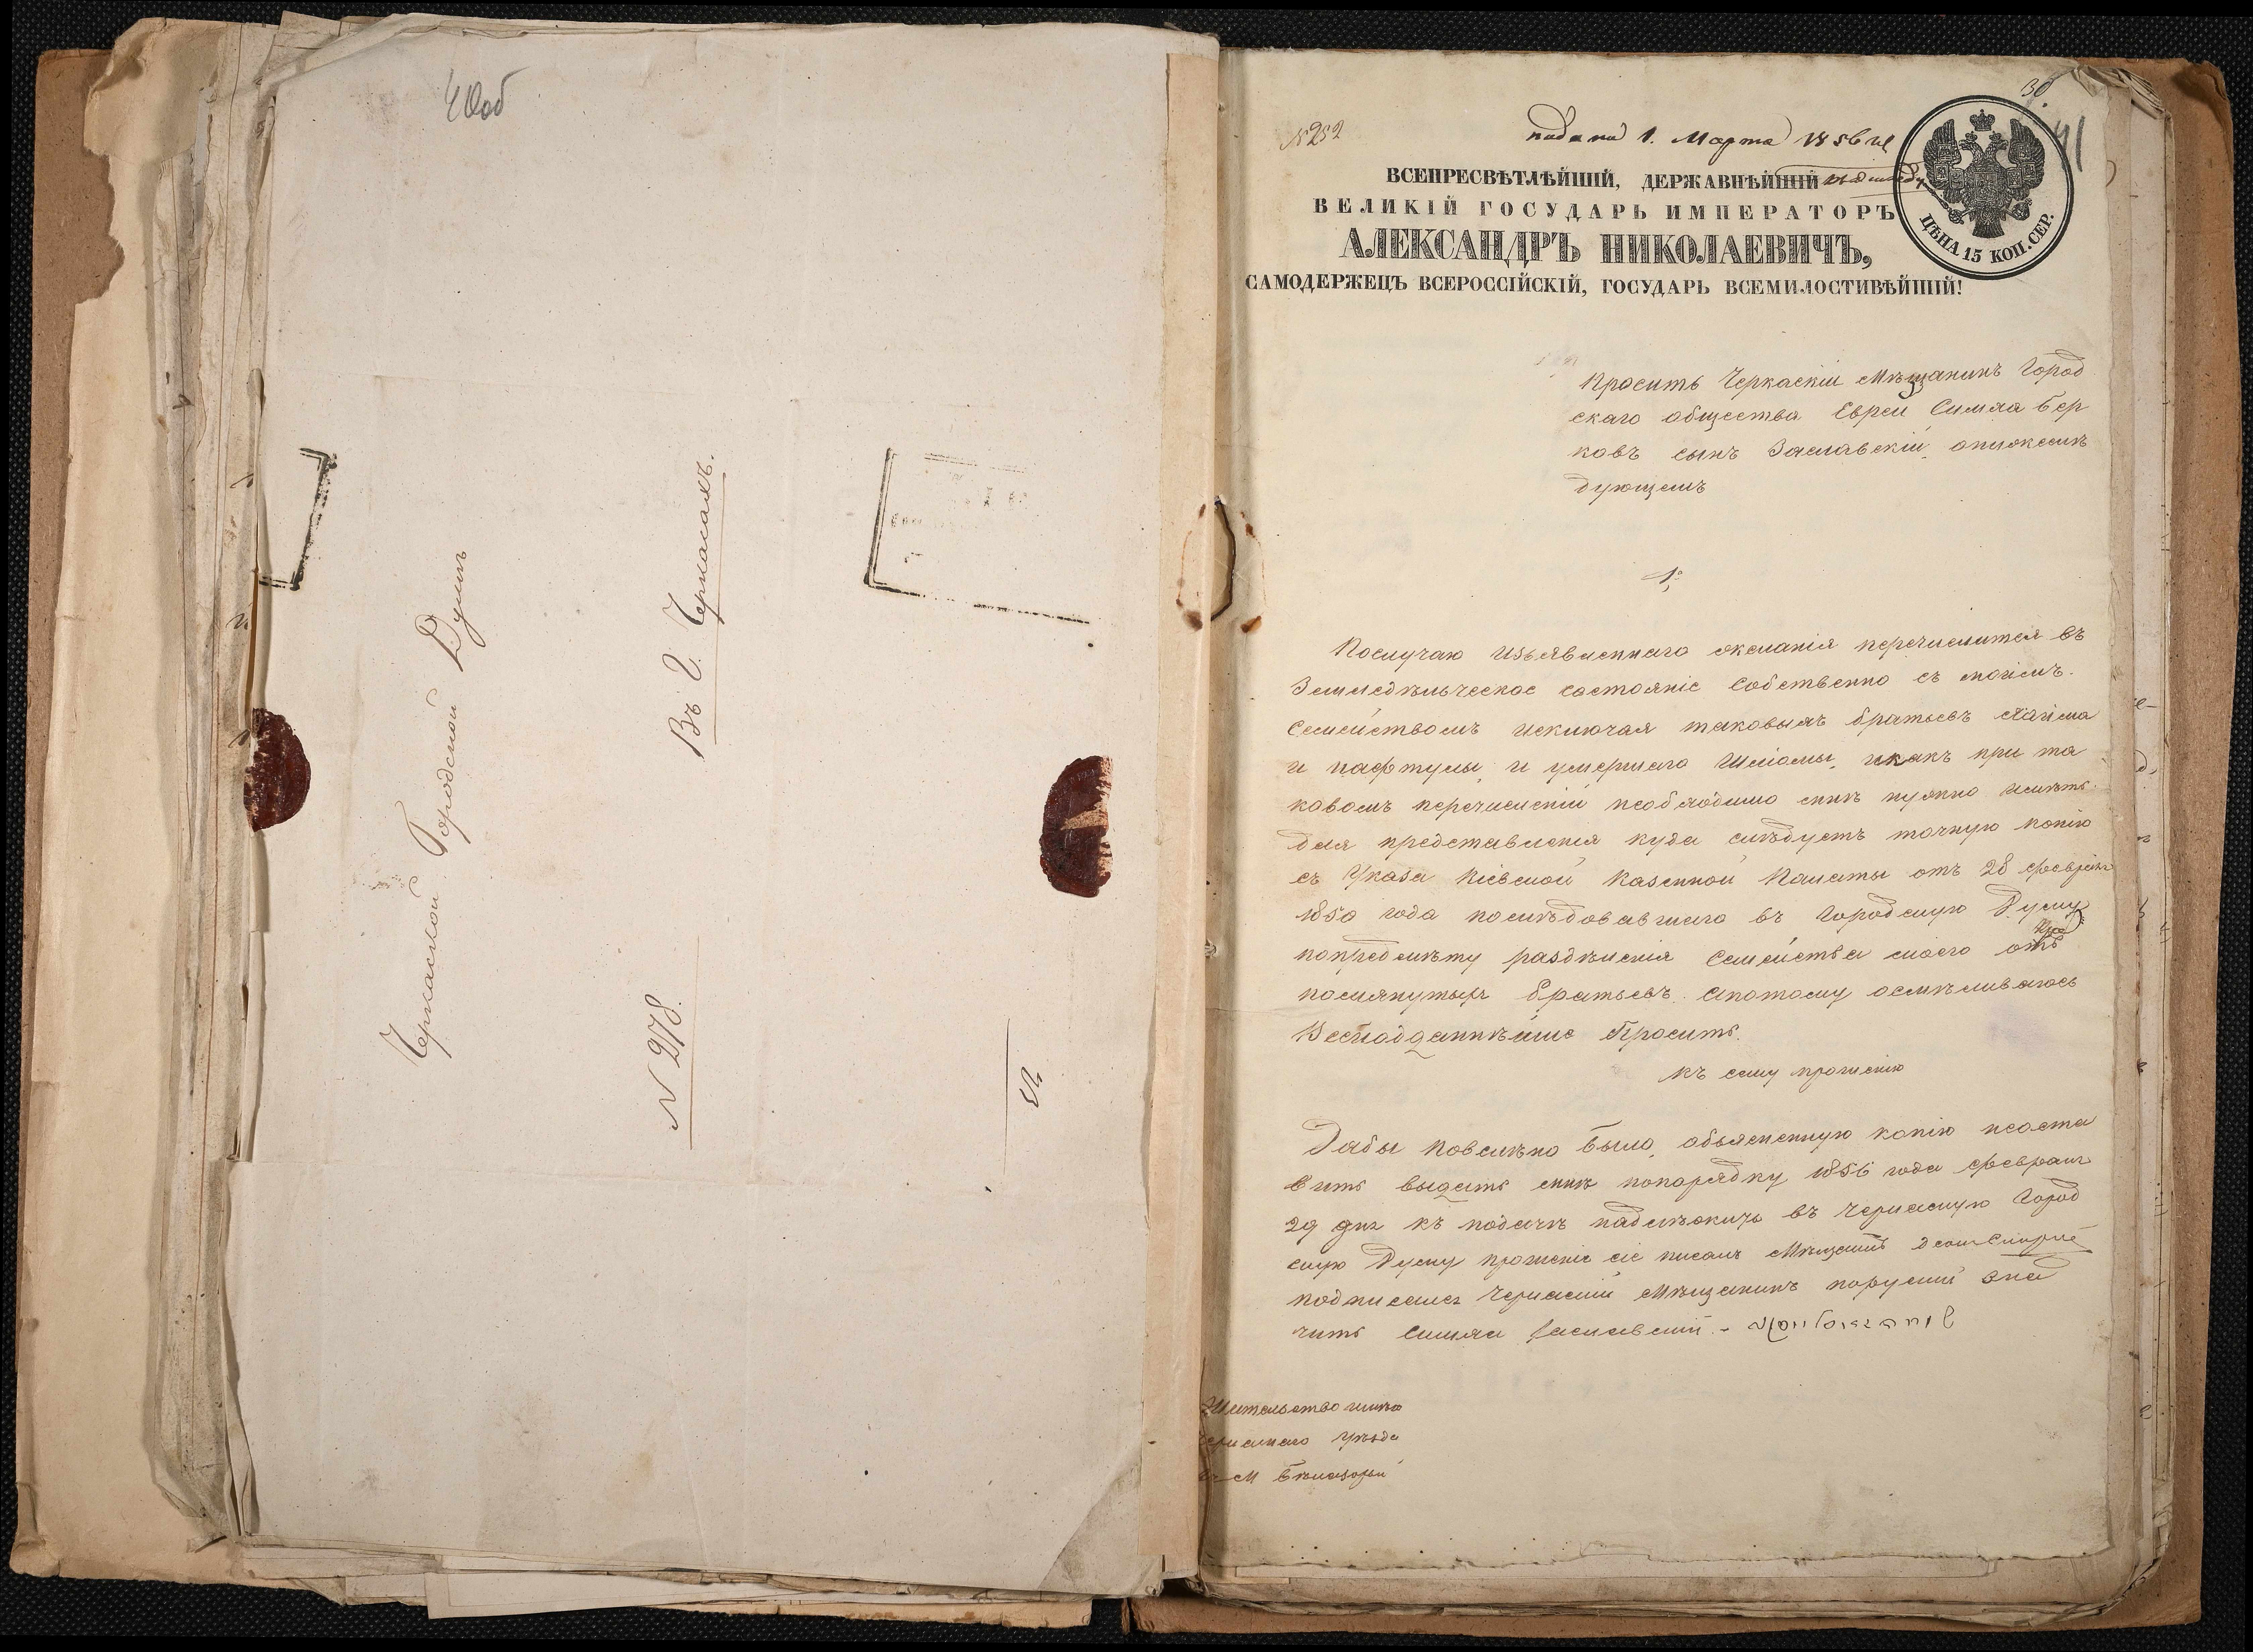 40об
Черкаской Городской Думѣ
Въ Г. Черкасахъ.
N 278.
30
41
N252
подано 1. Марта 1856 го
ВСЕПРЕСВѢТЛѢЙШІЙ, ДЕРЖАВНѢЙШІЙ
ВЕЛИКІЙ ГОСУДАРЬ ИМПЕРАТОРЪ
АЛЕКСАНДРЪ НИКОЛАЕВИЧЪ,
САМОДЕРЖЕЦЪ ВСЕРОССІЙСКІЙ, ГОСУДАРЬ ВСЕМИЛОСТИВѢЙШІЙ!
ЦѢНА 15 КОП. СЕР.
Проситъ Черкаскіи Мѣщанинъ Город
скаго общества Еврей Симха Бер
ковъ сынъ Заславскій, онижеслѣ
дующемъ
1е
Послучаю Изъявленнаго желанія перечислится въ
Земледѣльческое состояніе собственно съ моимъ
Семействомъ исключая таковыхъ братьевъ Хаима
и Нафтулы, и умершаго Шліомы, икакъ при та
ковомъ перечисленіи необходимо мнѣ нужно имѣть
для представленія куда слѣдуетъ точную копію
съ Указа Кіевской Казенной Палаты отъ 28 февраля
1850 года послѣдовавшаго въ Городскую Думу
попредмѣту раздѣленія Семейства моего отъ
помянутыхъ братьевъ. Апотому осмѣливаюсь
Всеподданнѣйше Просить.
къ сему прошенію
Дабы повелѣно было, объясненную копію неоста
вить выдать мнѣ попорядку 1856 года февраля
29 дня къ подачѣ надлѣжитъ въ Черкаскую Город
скую Думу прошеніе сіе писалъ Мѣщанинъ
подписался Черкаскій Мѣщанинъ поруски зна
читъ Симха Заславскій. -
Жительство имѣю
Черкаскаго уѣзда
въ М Бѣлозорьи